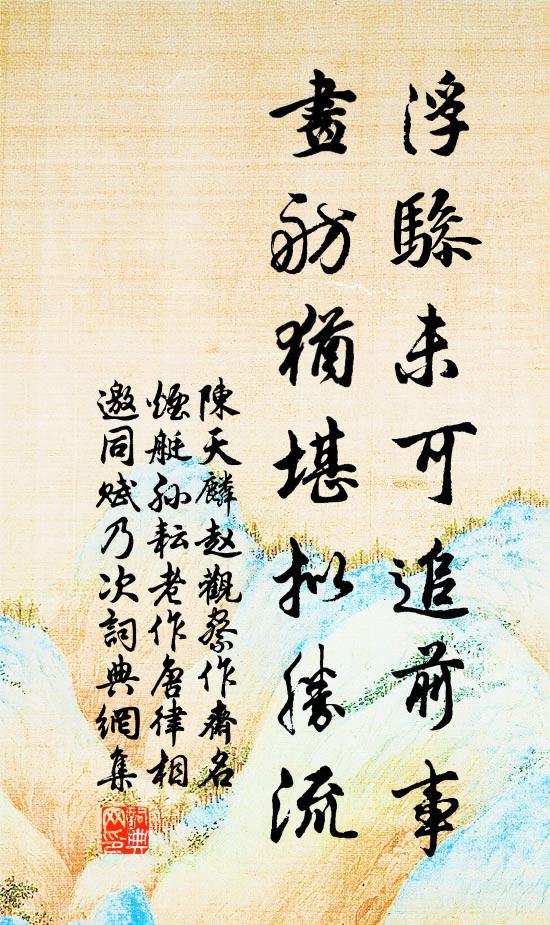 浮騐未可追前事
畫舫猶堪拟勝流
陳天麟赵觀察作齋名
煙艇孙耘老作唐律相
邀同赋乃次詞典網集